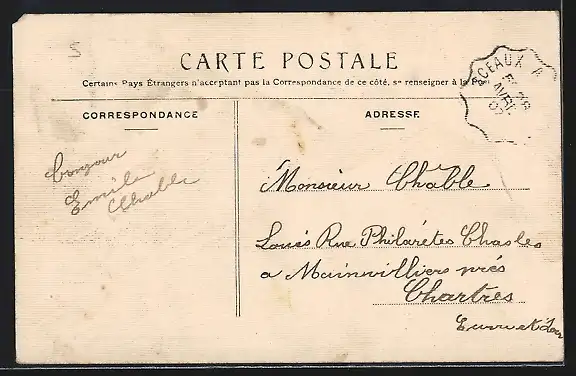 CARTE POSTALE
Certains Pays Étrangers n'acceptant pas la Correspondance de ce côté, se renseigner à la Poste
CORRESPONDANCE
ADRESSE
Bonjour
Emile
Chable
Monsieur Chable
Louis Rue Philarétes Chasles
a Mainvilliers prés
Chartres
Eure et Loir
CEAUX A
28
AVRIL
07
5